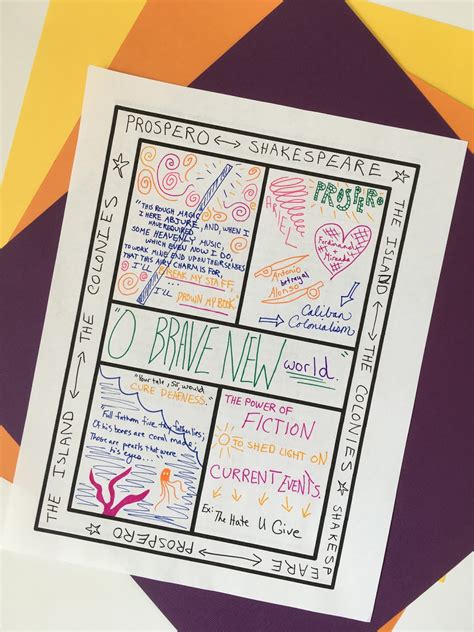 PROSPERO ↔ SHAKESPEARE
THE ISLAND ↔ THE COLONIES
SHAKESPEARE ↔ PROSPERO
THE ISLAND ↔ THE COLONIES
"THIS ROUGH MAGIC
I HERE ABJURE, AND, WHEN I
HAVE REQUIRED
SOME HEAVENLY MUSIC,
WHICH EVEN NOW I DO,
TO WORK MINE END UPON THEIR SENSES
THAT THIS AIRY CHARM IS FOR,
I'LL BREAK MY STAFF...
I'LL
DROWN MY BOOK."
ARIEL
PROSPERO
Ferdinand
+
Miranda
Antonio
betrayal
Alonso
Caliban
Colonialism
"O BRAVE NEW world."
"Your tale, Sir, would
CURE DEAFNESS."
"Full fathom five thy father lies;
Of his bones are coral made;
Those are pearls that were
his eyes...
THE POWER OF
FICTION
TO SHED LIGHT ON
CURRENT EVENTS.
Ex: The Hate U Give